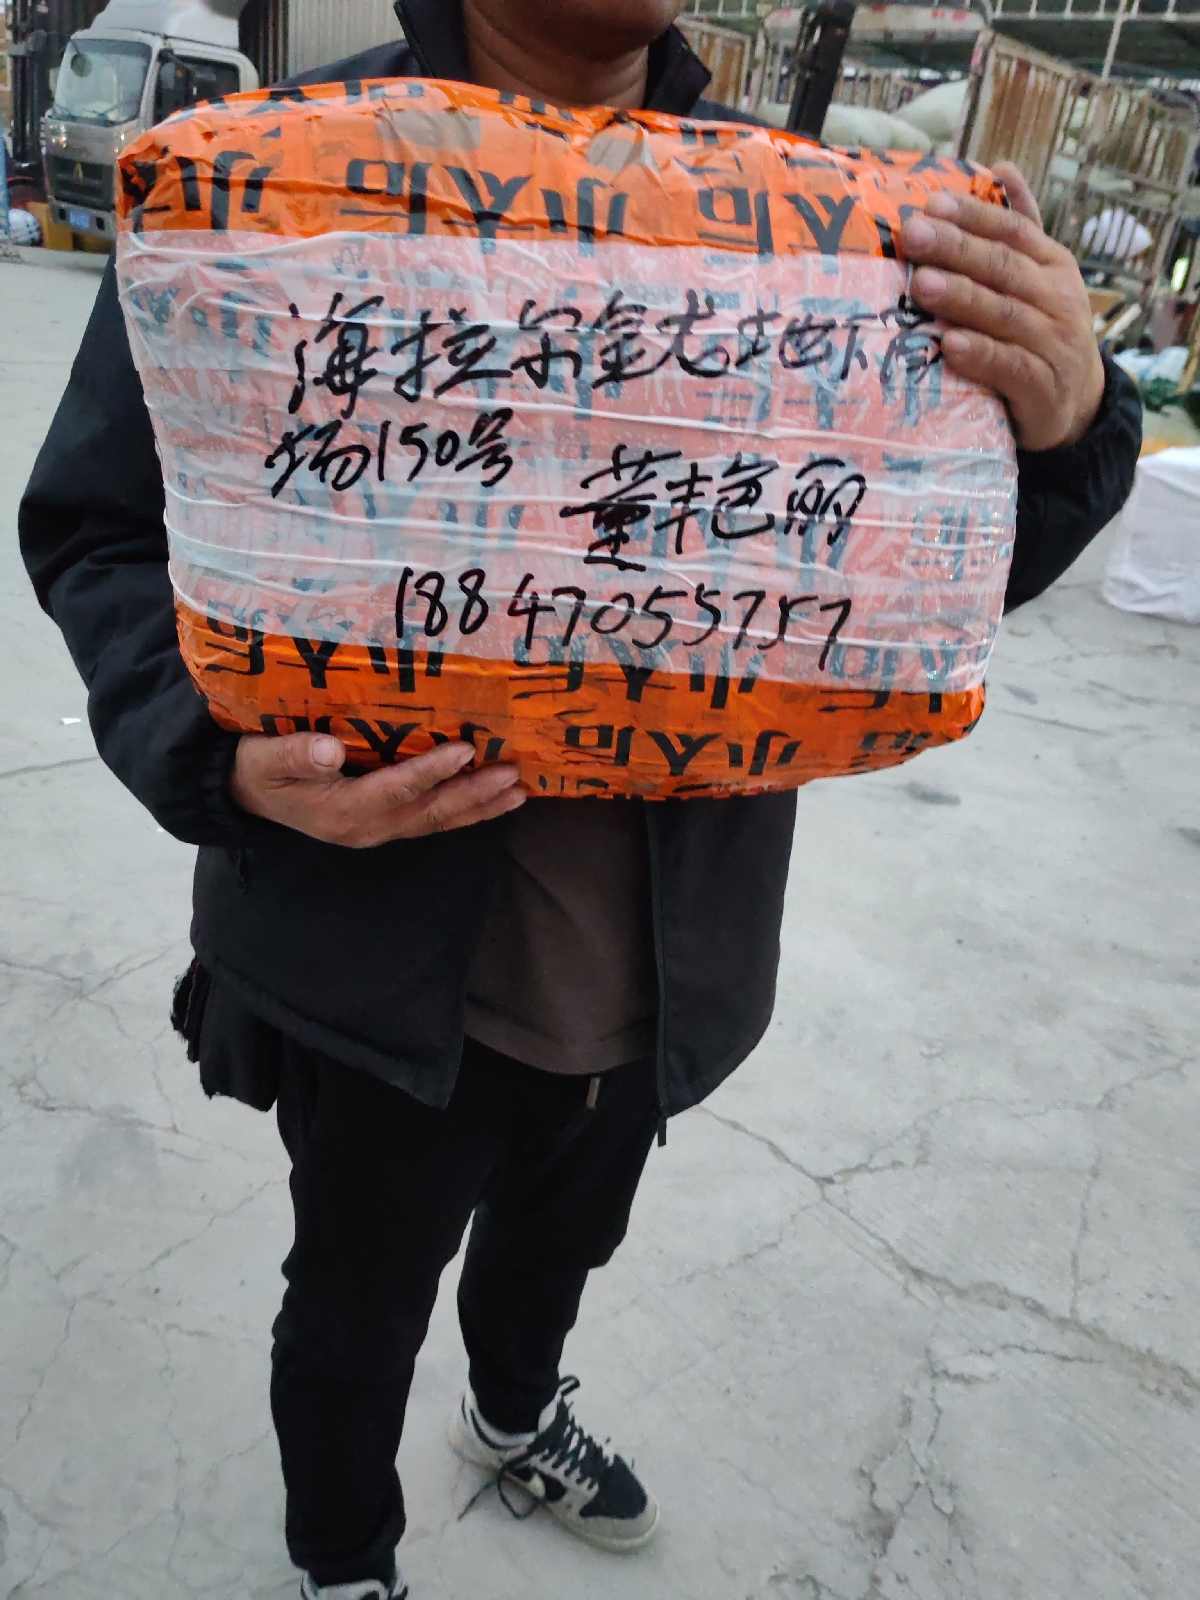 海拉尔金龙地下商
场150号
董艳丽
18847055757